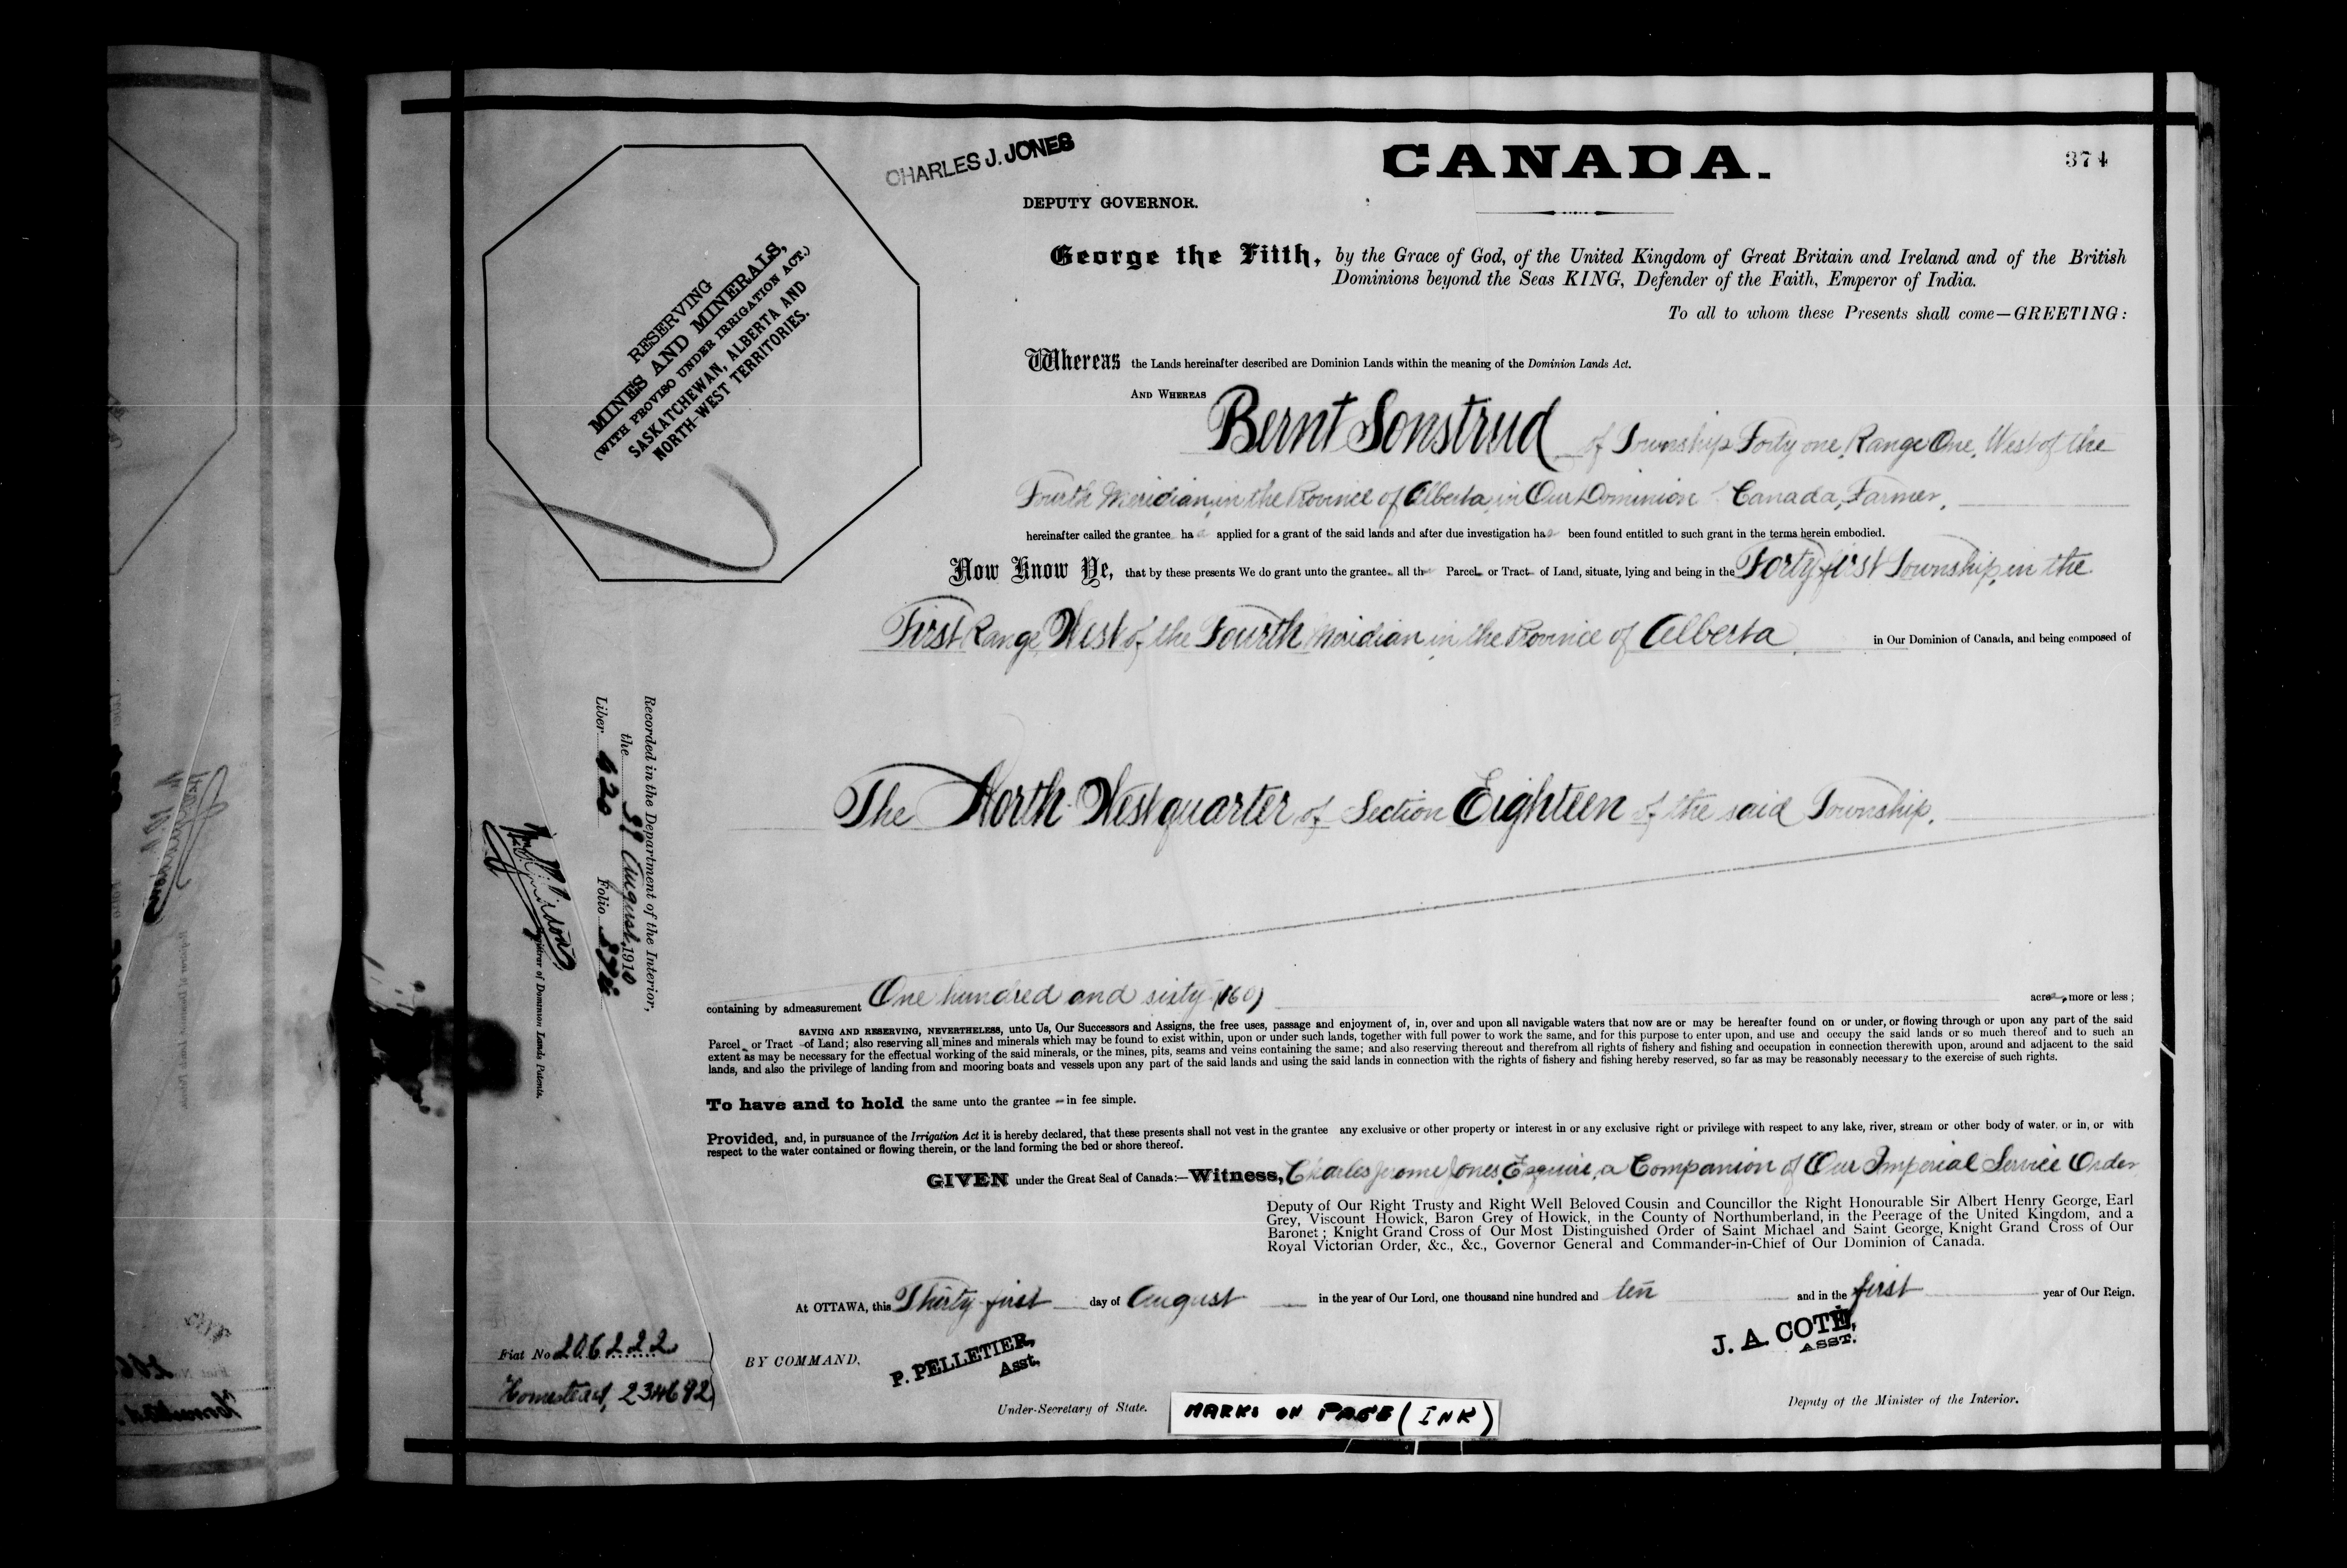 CHARLES J. JONES
CANADA.
374
DEPUTY GOVERNOR.
George the Fifth, by the Grace of God, of the United Kingdom of Great Britain and Ireland and of the British
Dominions beyond the Seas KING, Defender of the Faith, Emperor of India.
To all to whom these Presents shall come—GREETING:
RESERVING
MINES AND MINERALS,
(WITH PROVISO UNDER IRRIGATION ACT.)
SASKATCHEWAN, ALBERTA AND
NORTH-WEST TERRITORIES.
Whereas the Lands hereinafter described are Dominion Lands within the meaning of the Dominion Lands Act.
AND WHEREAS Bernt Sonstrud of Township Forty one, Range One, West of the
Fourth Meridian, in the Province of Alberta, in Our Dominion Canada, Farmer,
hereinafter called the grantee ha applied for a grant of the said lands and after due investigation has been found entitled to such grant in the terms herein embodied.
Now Know Ye, that by these presents We do grant unto the grantee all th Parcel or Tract of Land, situate, lying and being in the Forty first Township, in the
First Range West of the Fourth Meridian in the Province of Alberta, in Our Dominion of Canada, and being composed of
The North West quarter of Section Eighteen of the said Township.
Recorded in the Department of the Interior,
the August, 1910
Liber 620 Folio 374
Registrar of Dominion Lands Patents.
containing by admeasurement One hundred and sixty (160) acres, more or less;
SAVING AND RESERVING, NEVERTHELESS, unto Us, Our Successors and Assigns, the free uses, passage and enjoyment of, in, over and upon all navigable waters that now are or may be hereafter found on or under, or flowing through or upon any part of the said
Parcel or Tract of Land; also reserving all mines and minerals which may be found to exist within, upon or under such lands, together with full power to work the same, and for this purpose to enter upon, and use and occupy the said lands or so much thereof and to such an
extent as may be necessary for the effectual working of the said minerals, or the mines, pits, seams and veins containing the same; and also reserving thereout and therefrom all rights of fishery and fishing and occupation in connection therewith upon, around and adjacent to the said
lands, and also the privilege of landing from and mooring boats and vessels upon any part of the said lands and using the said lands in connection with the rights of fishery and fishing hereby reserved, so far as may be reasonably necessary to the exercise of such rights.
To have and to hold the same unto the grantee in fee simple.
Provided, and, in pursuance of the Irrigation Act it is hereby declared, that these presents shall not vest in the grantee any exclusive or other property or interest in or any exclusive right or privilege with respect to any lake, river, stream or other body of water, or in, or with
respect to the water contained or flowing therein, or the land forming the bed or shore thereof.
GIVEN under the Great Seal of Canada:—Witness, Charles Jerome Jones, Esquire, a Companion of Our Imperial Service Order
Deputy of Our Right Trusty and Right Well Beloved Cousin and Councillor the Right Honourable Sir Albert Henry George, Earl
Grey, Viscount Howick, Baron Grey of Howick, in the County of Northumberland, in the Peerage of the United Kingdom, and a
Baronet; Knight Grand Cross of Our Most Distinguished Order of Saint Michael and Saint George, Knight Grand Cross of Our
Royal Victorian Order, &c., &c., Governor General and Commander-in-Chief of Our Dominion of Canada.
At OTTAWA, this Thirty-first day of August in the year of Our Lord, one thousand nine hundred and ten and in the first year of Our Reign.
Fiat No 206222
Homestead, 234692
BY COMMAND,
P. PELLETIER,
Asst.
Under-Secretary of State.
J. A. COTÉ,
ASST.
Deputy of the Minister of the Interior.
MARKS ON PAGE (INK)